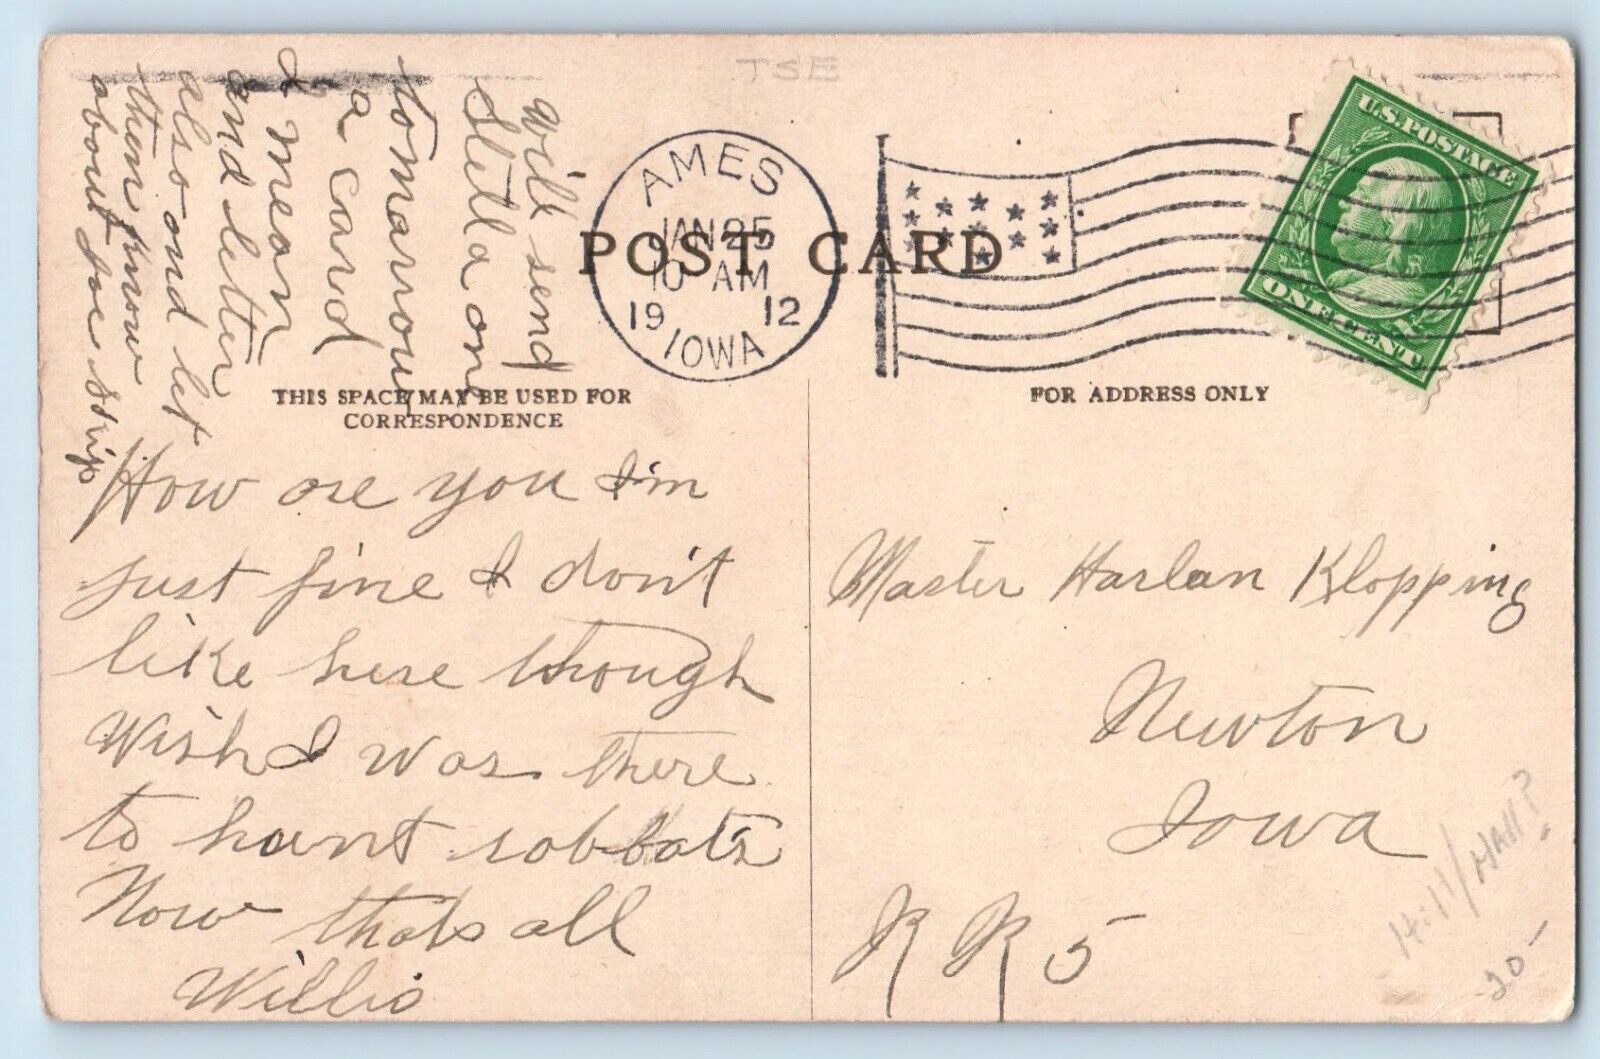 TSE
AMES
JAN 25
10 AM
19 12
IOWA
POST CARD
U.S. POSTAGE
ONE CENT
THIS SPACE MAY BE USED FOR
CORRESPONDENCE
FOR ADDRESS ONLY
How are you I'm
just fine I don't
like here though
Wish I was there
to hunt rabbats
Now thats all
Willis
Will send
Stella one
tomarrow
a card
I mean
and letter
also and let
them know
about soe ship
Master Harlan Klopping
Newton
Iowa
R R 5
Hill/Hall?
20-